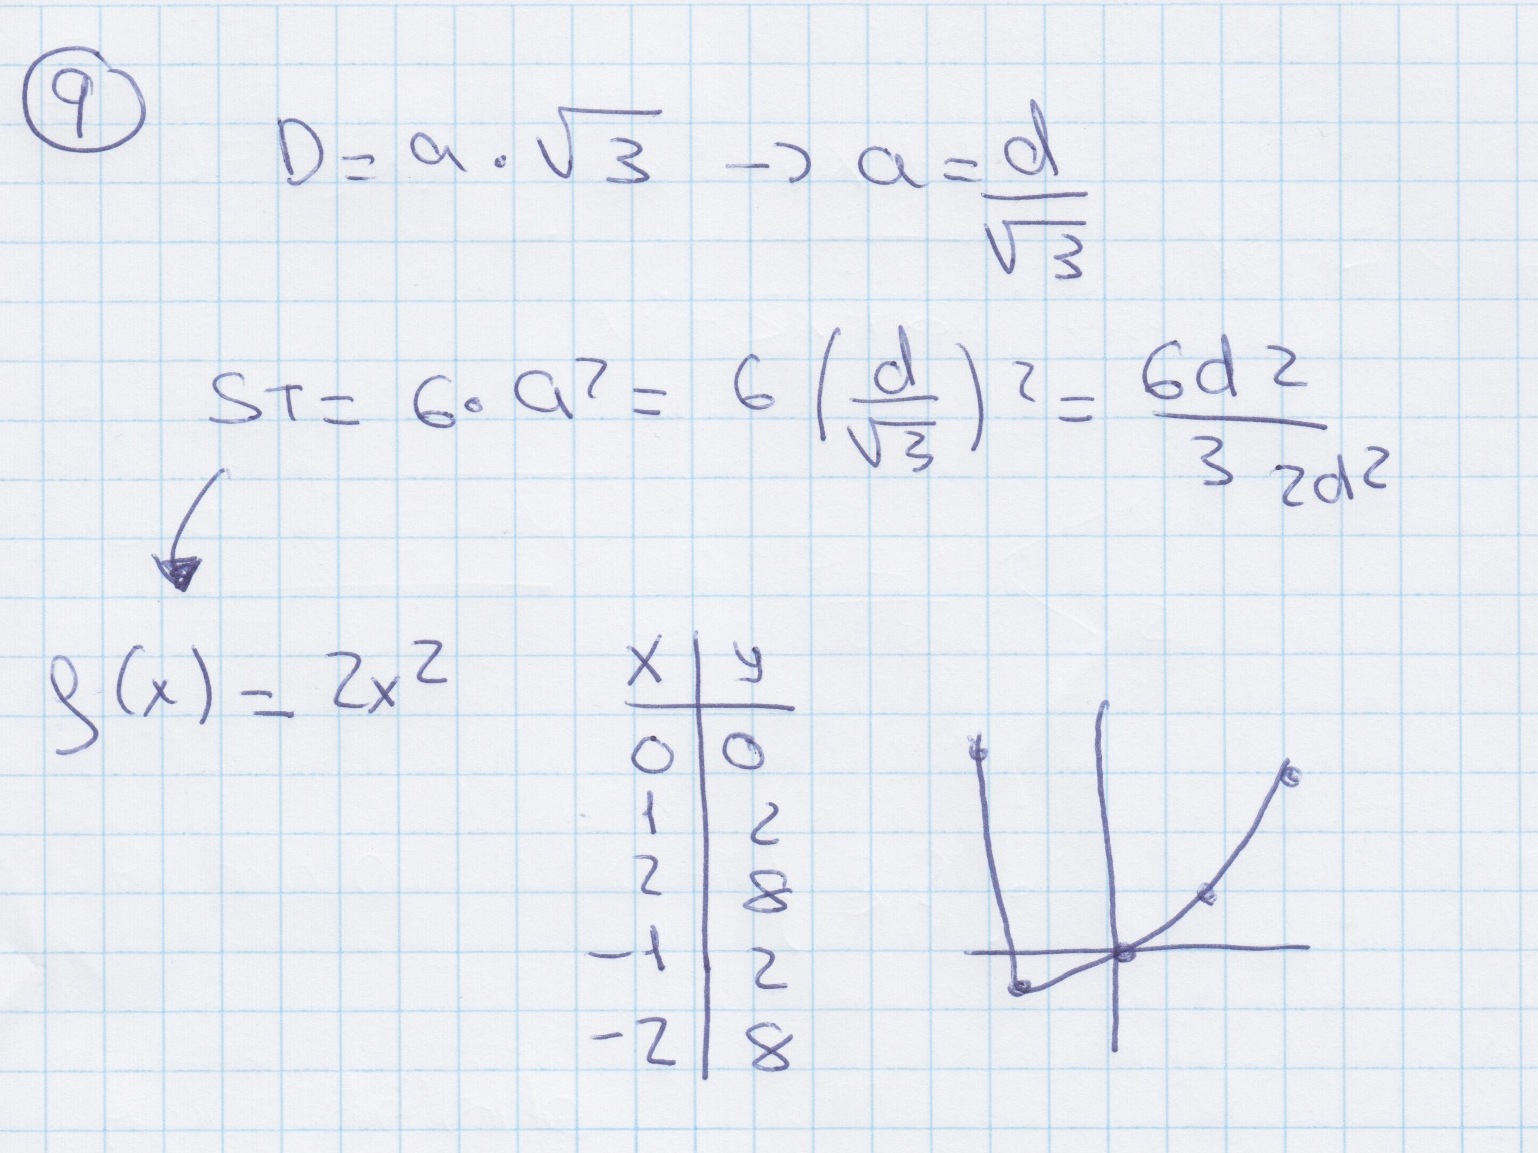 9
D = a · √3 → a = d/√3
ST = 6 · a² = 6 (d/√3)² = 6d²/3 2d²
f(x) = 2x²
x | y
0 | 0
1 | 2
2 | 8
-1 | 2
-2 | 8